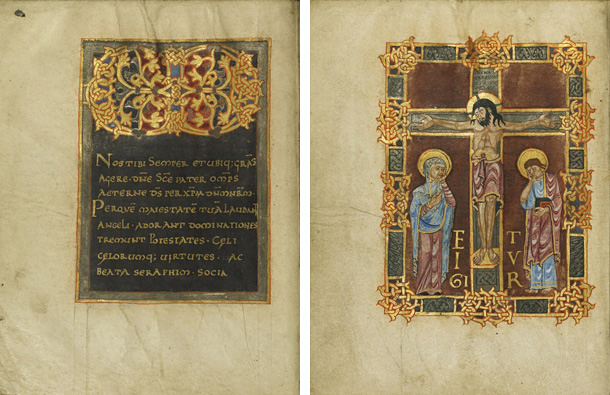 Nos tibi Semper et ubiq; grās
agere. Dn̄e Sc̄e pater omp̄s
aeterne d̄s per xp̄m dn̄m nr̄m.
Per quē maiestatē tuā laudant
angeli. adorant dominationes
tremunt potestates. Celi
celorumq; uirtutes. ac
beata seraphim. socia
E
I
GI
T
V
R